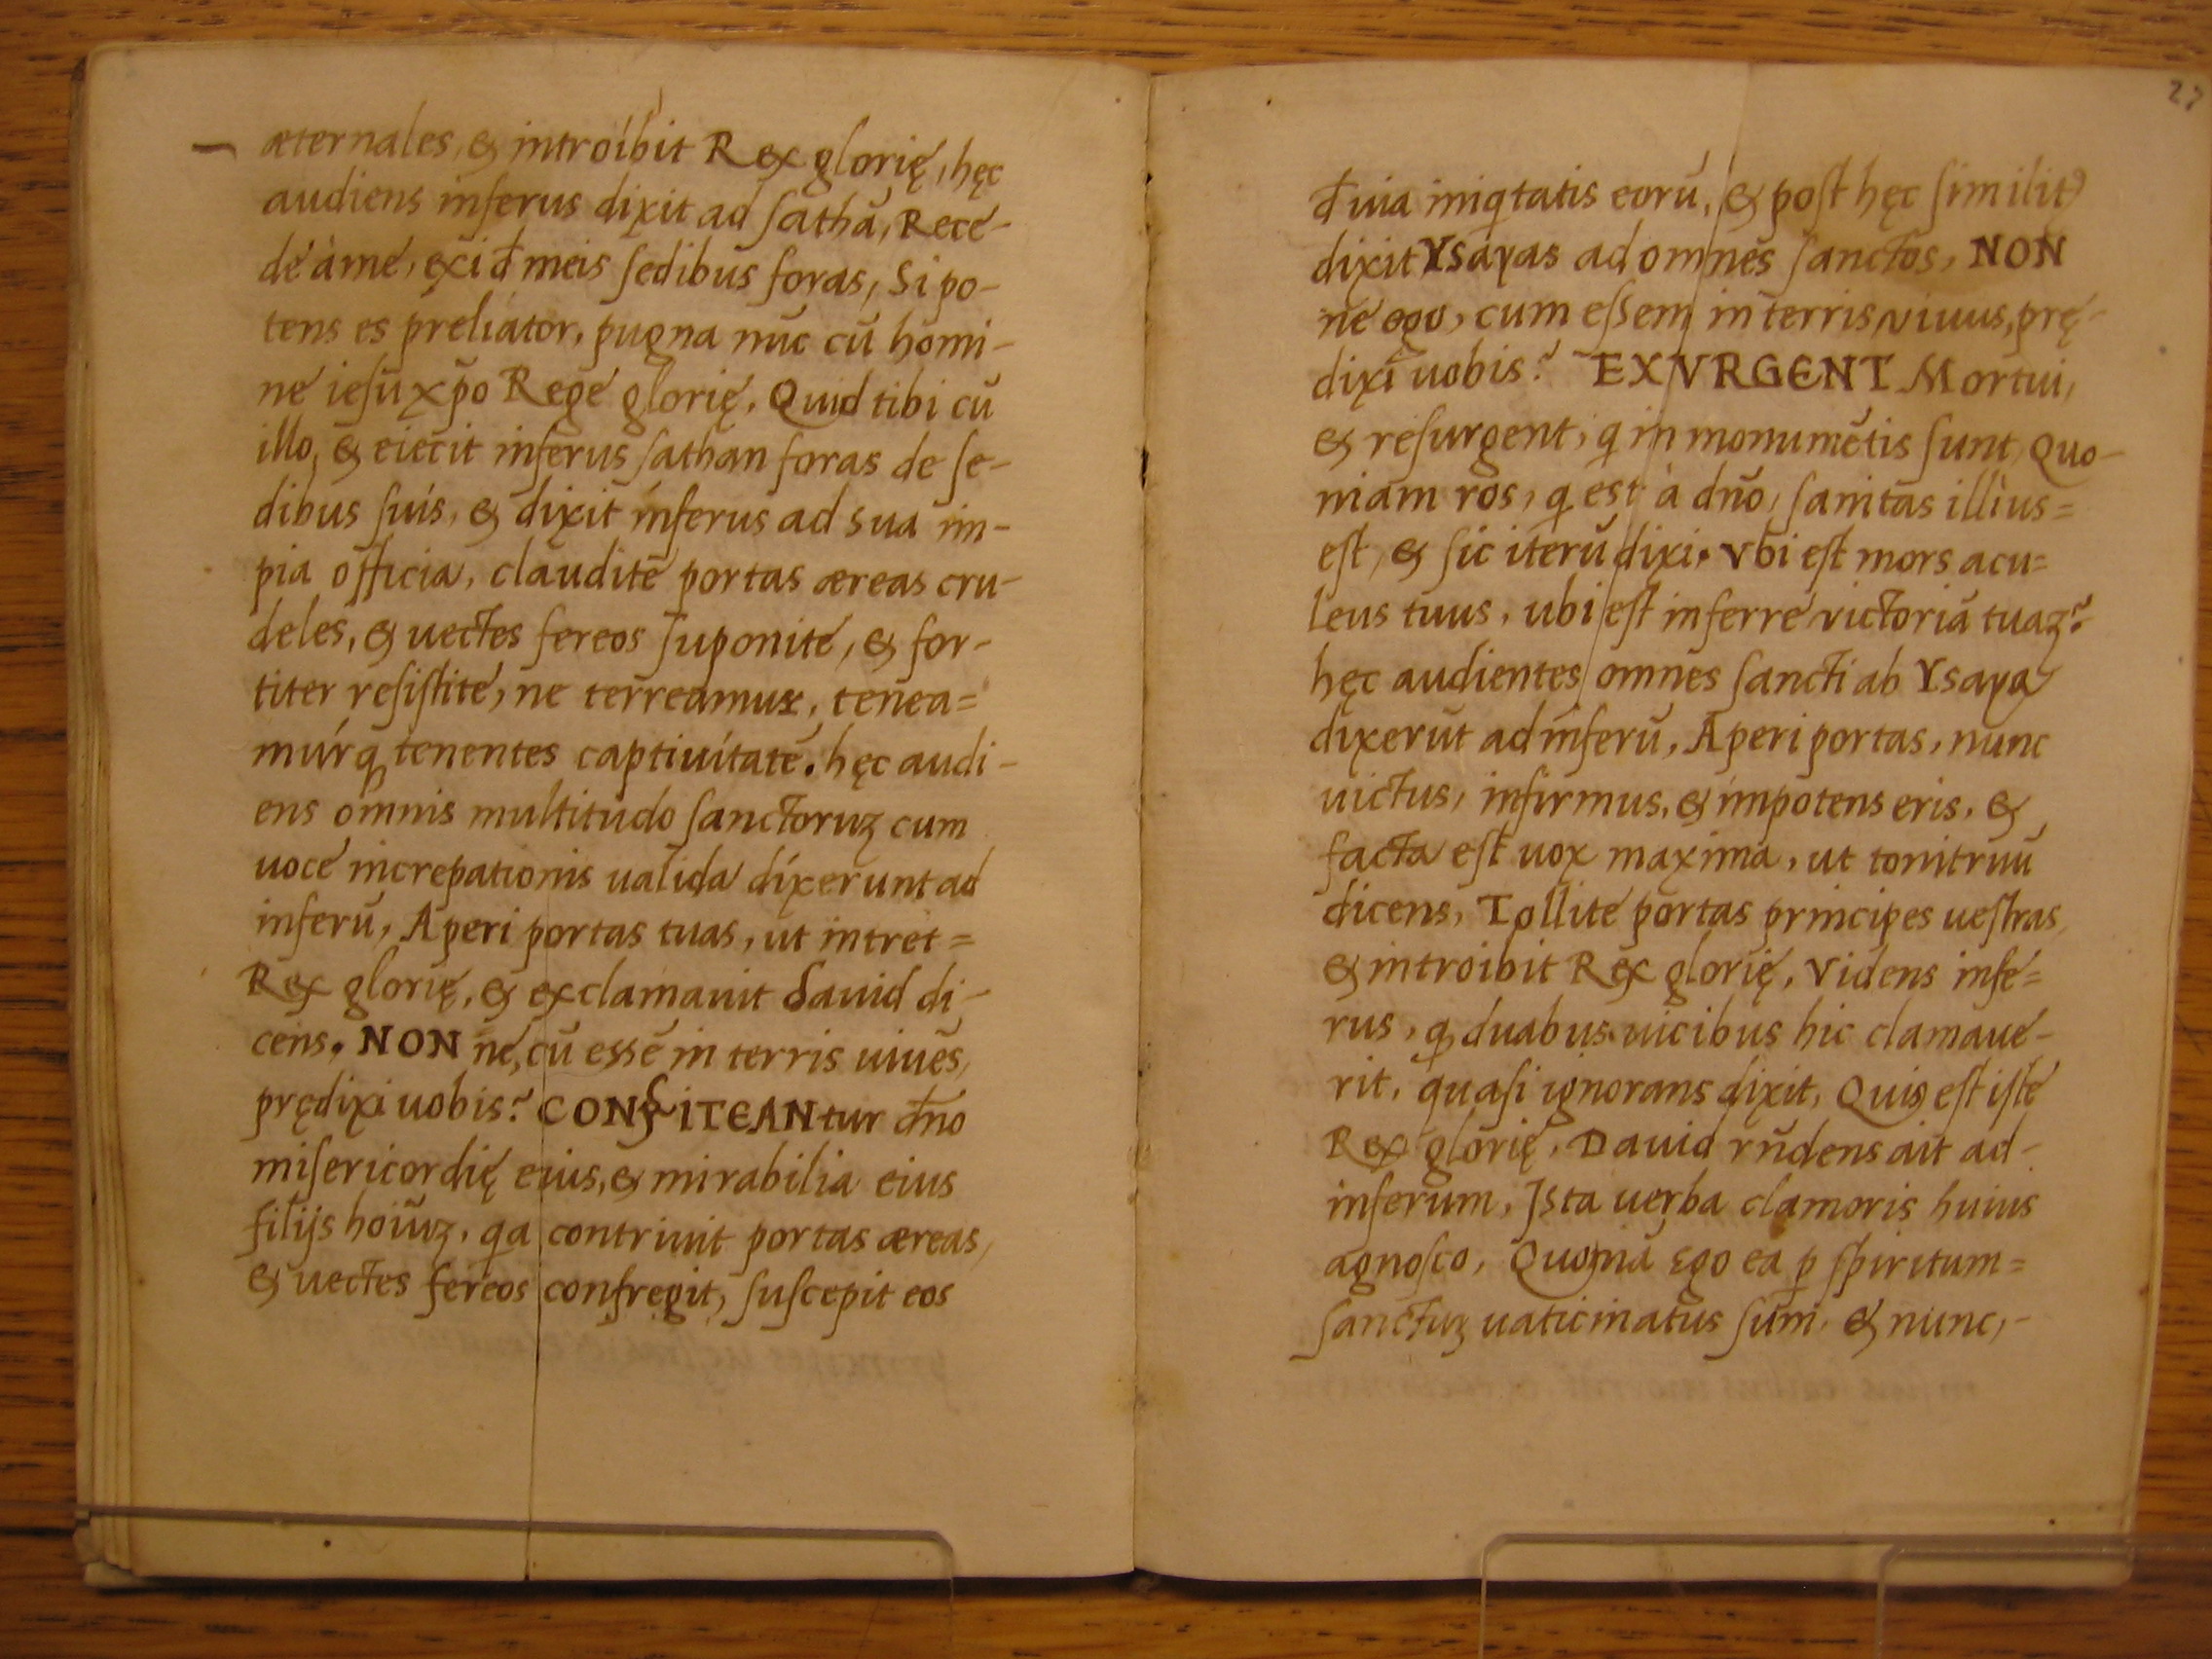 æternales, & introibit Rex glorię, hęc
audiens inferus dixit ad ſathā, Rece-
de à me, exi đ meis ſedibus foras, Si po-
tens es preliator, pugna nūc cū homi-
ne ieſu xp̄o Rege glorię, Quid tibi cū
illo, & eiecit inferus ſathan foras de ſe-
dibus ſuis, & dixit inferus ad sua im-
pia officia, claudite portas æreas cru-
deles, & uectes fereos ſuponite, & for-
titer reſiſtite, ne terreamur, tenea=
múrq tenentes captiuitatē. hęc audi-
ens omnis multitudo ſanctoruʒ cum
uoce increpationis ualida dixerunt ad
inferū, Aperi portas tuas, ut intret=
Rex glorię, & exclamauit dauid di-
cens. NON ne, cū essē in terris uiuēs,
prędixi uobis? CONFITEANtur dn̄o
miſericordię eius, & mirabilia eius
filijs hoiūʒ, qa contriuit portas æreas,
& uectes fereos confregit, ſuſcepit eos
27
đ uia iniqtatis eorū, & poſt hęc ſimilit
dixit Ysayas ad omnes ſanctos, NON
ne ego, cum eſsem in terris viuus, prę-
dixi uobis? EXVRGENT Mortui,
& reſurgent, q in monumētis ſunt, Quo-
niam ros, q est à dn̄o, ſanitas illius=
eſt, & ſic iterū dixi. Vbi eſt mors acu=
leus tuus, ubi eſt inferre victoriā tuaʒ?
hęc audientes omnes ſancti ab Ysaya
dixerūt ad inferū, Aperi portas, nunc
uictus, infirmus, & impotens eris, &
facta eſt uox maxima, ut tonitruū
dicens, Tollite portas principes ueſtras,
& introibit Rex glorię, Videns infe=
rus, q duabus uicibus hic clamaue-
rit, quaſi ignorans dixit, Quis eſt iſte
Rex glorię, David rn̄dens ait ad-
inferum, Jsta uerba clamoris huius
agnoſco, Quoniā Ego ea p ſpiritum=
ſanctuʒ uaticinatus ſum, & nunc,-